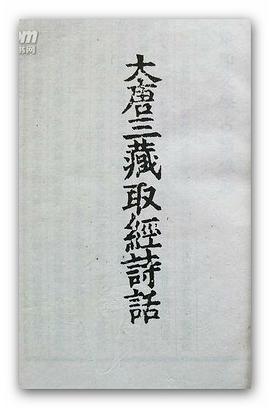 大唐三藏取經詩話